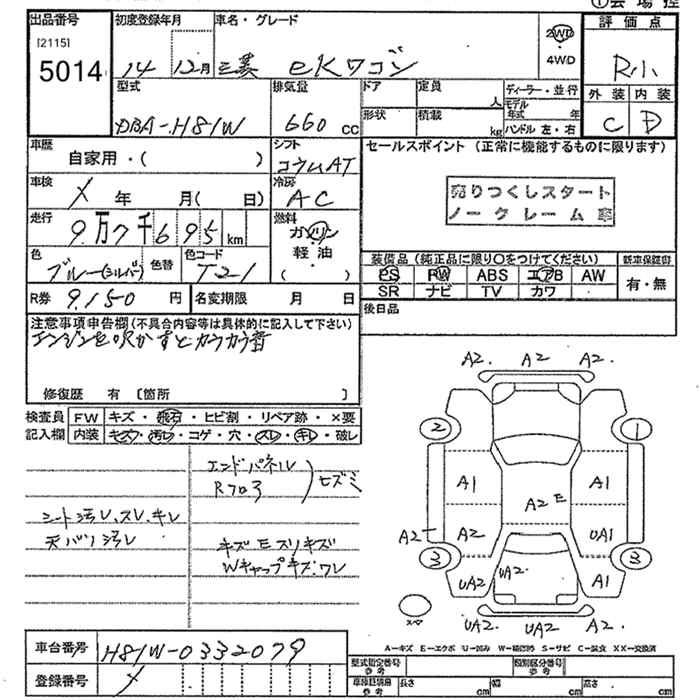 ①会場控
出品番号 初度登録年月 車名・グレード 2WD 評価点
[2115] ・
5014 14 12月 三菱 eKワゴン 4WD R小
型式 排気量 ドア 定員 ディーラー・並行 外装 内装
人 モデル年式 年
DBA-H81W 660 cc 形状 積載 kg ハンドル 左・右 C D
車歴 シフト セールスポイント (正常に機能するものに限ります)
自家用・( ) コラムAT
車検 冷房 売りつくしスタート
X 年 月( 日) AC ノークレーム車
走行 燃料
9万7千695km ガソリン
色 色替 色コード 軽油 装備品(純正品に限り○をつけてください) 新車保証書
ブルー(シルバー) T21 ( ) PS PW ABS エアB AW 有・無
R券 9,150 円 名変期限 月 日 SR ナビ TV カワ
注意事項申告欄(不具合内容等は具体的に記入して下さい) 後日品
エンジンを吹かすとカラカラ音
修復歴 有 〔箇所 〕
検査員 FW キズ・飛石・ヒビ割・リペア跡・×要
記入欄 内装 キズ・汚レ・コゲ・穴・スレ・キレ・破レ
エンドパネル
Rフロア ヒズミ
シート汚レ、スレ、キレ
天バリ汚レ キズ エスリキズ
Wキャップキズ、ワレ
A2. A2 A2.
2 1
A1 A1
A2 E
A2 A2 UA1
3 3
UA2 UA2 A1
スペア UA2 UA2 A2
車台番号 H81W-0332079 A-キズ E-エクボ U-凹み W-補修跡 S-サビ C-腐食 XX-交換済
登録番号 X 型式指定番号 参考 類別区分番号 参考
車検証数値 参考 長さ cm 幅 cm 高さ cm